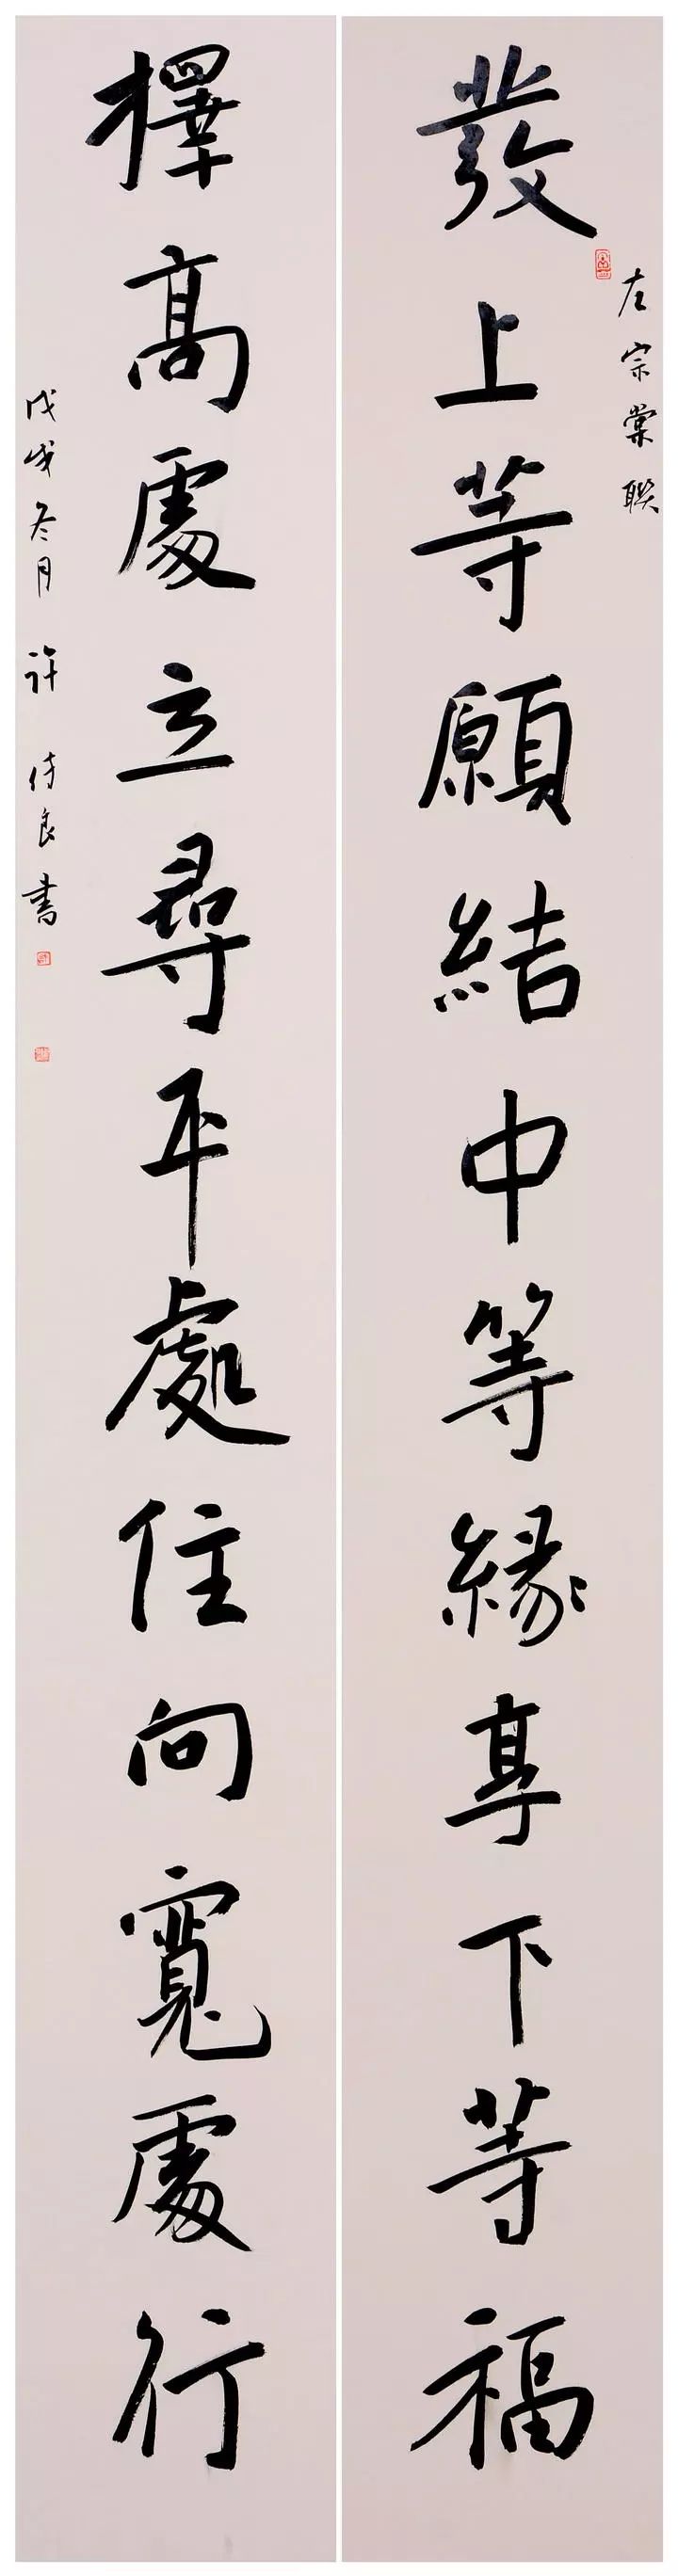 發上等願結中等緣享下等福
左宗棠聯
擇高處立尋平處住向寬處行
戊戌冬月 許 待良書